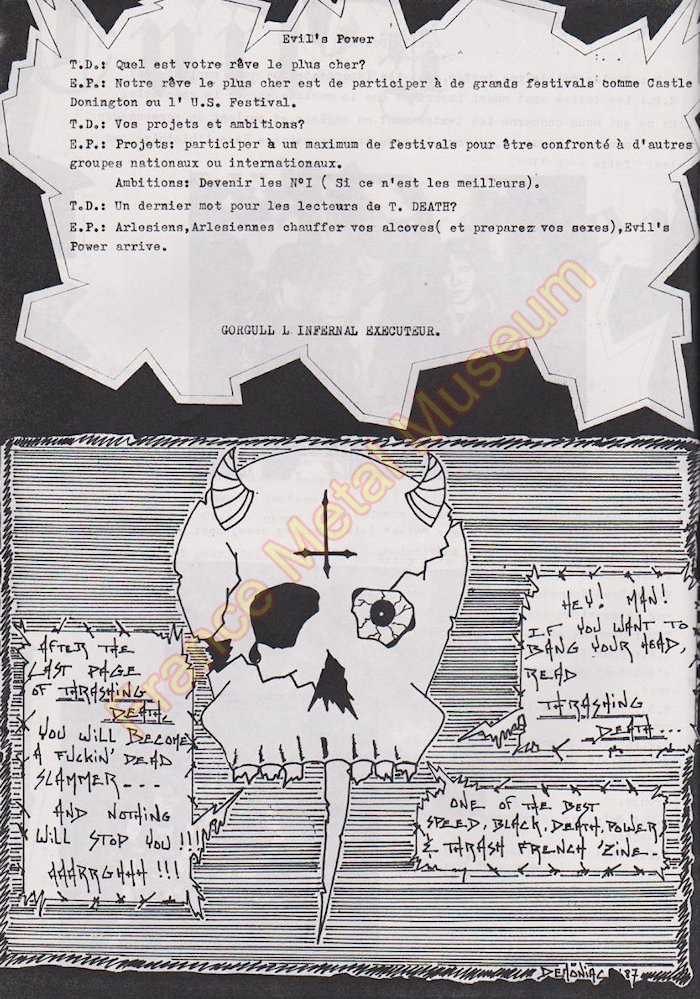 Evil's Power
T.D.: Quel est votre rêve le plus cher?
E.P.: Notre rêve le plus cher est de participer à de grands festivals comme Castle
Donington ou l' U.S. Festival.
T.D.: Vos projets et ambitions?
E.P.: Projets: participer à un maximum de festivals pour être confronté à d'autres
groupes nationaux ou internationaux.
Ambitions: Devenir les N°I ( Si ce n'est les meilleurs).
T.D.: Un dernier mot pour les lecteurs de T. DEATH?
E.P.: Arlesiens,Arlesiennes chauffer vos alcoves( et preparez vos sexes),Evil's
Power arrive.
GORGULL L INFERNAL EXECUTEUR.
France Metal Museum
HEY! MAN!
IF YOU WANT TO
BANG YOUR HEAD,
READ
THRASHING
DEATH...
AFTER THE
LAST PAGE
OF THRASHING
DEATH,
YOU WILL BECOME
A FUCKIN' DEAD
SLAMMER...
AND NOTHING
WILL STOP YOU!!!
AAARRGHHH!!!
ONE OF THE BEST
SPEED, BLACK, DEATH, POWER
& THRASH FRENCH 'ZINE.
DEMÖNIAC '87